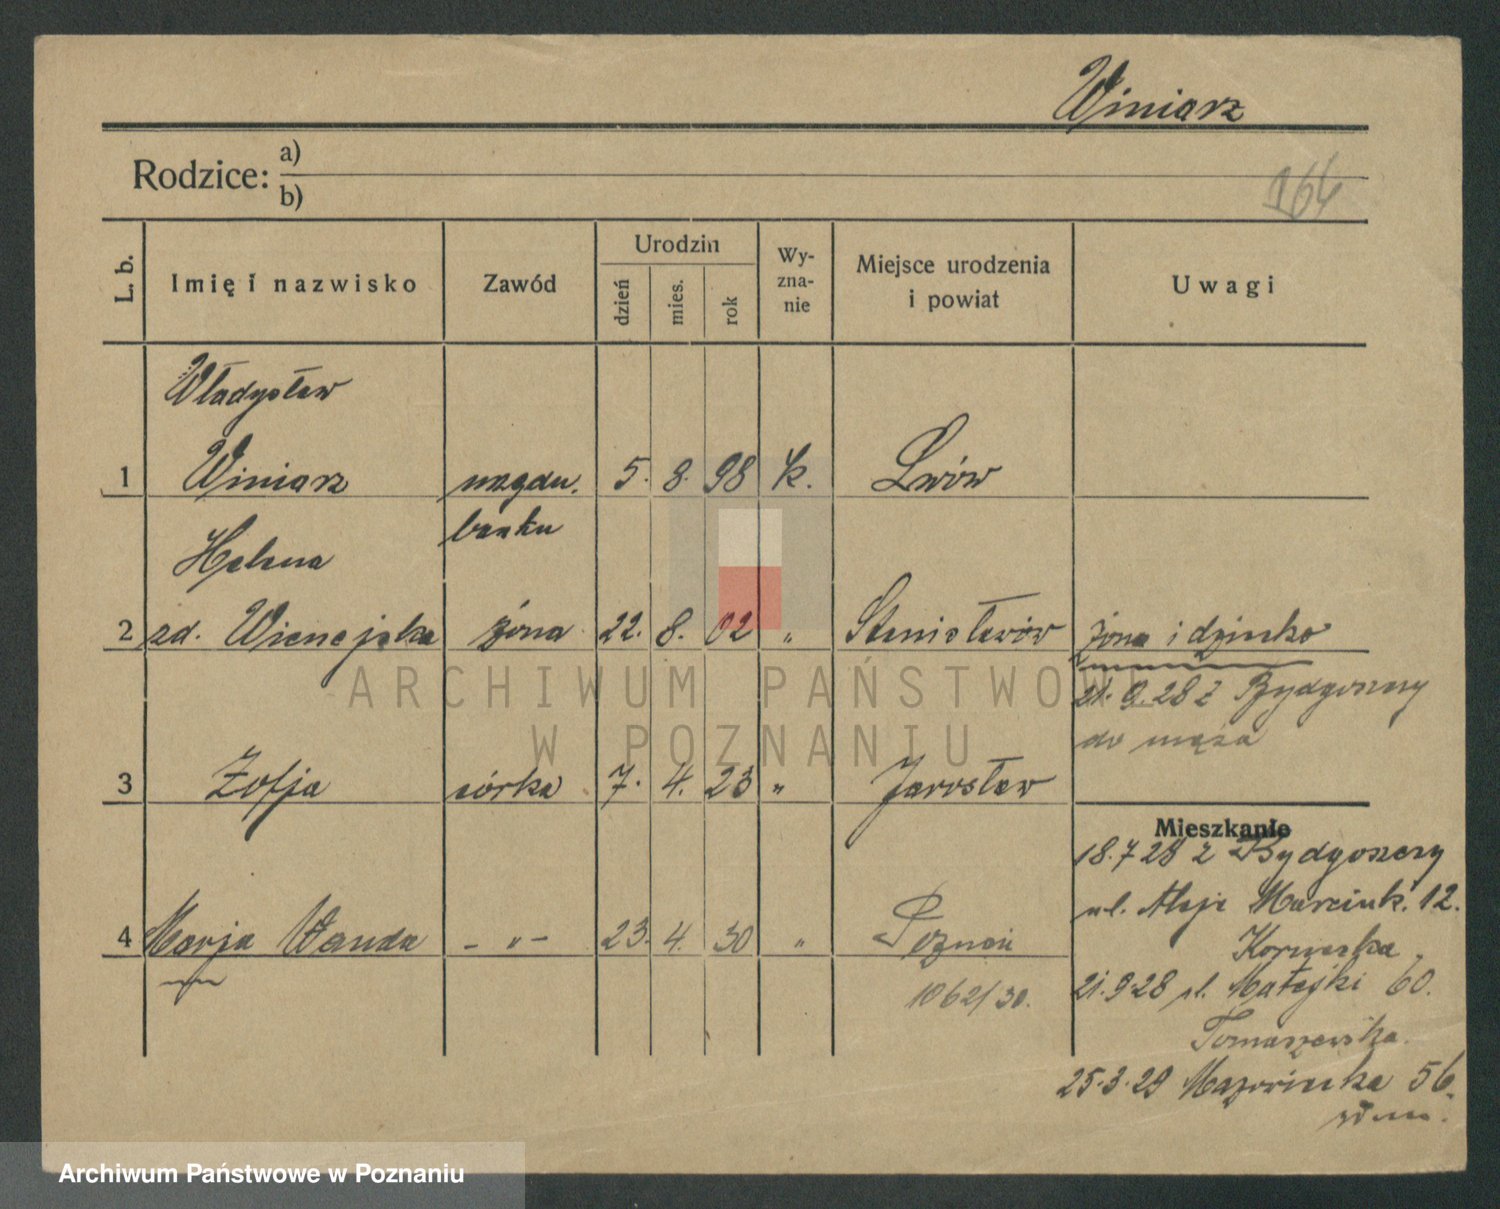 Winiarz
Rodzice: a)
b)
164
L. b.
Imię i nazwisko
Zawód
Urodzin
dzień
mies.
rok
Wy-
zna-
nie
Miejsce urodzenia
i powiat
Uwagi
Władysław
1 Winiarz urzędn. 5. 8. 98 k. Lwów
banku
Helena
2 zd. Wieniejska żona 22. 8. 02 „ Stanisławów żona i dziecko
21. 9. 28 z Bydgoszczy
do męża
3 Zofja córka 7. 4. 23 „ Jarosław
Mieszkanie
18.7 28 z Bydgoszczy
ul. Aleje Marcink. 12.
4 Marja Wanda – „ – 23. 4. 30 „ Poznań
1062/30.
21.9.28 ul. Matejki 60.
Tomaszewska.
25.3.29 Mazowiecka 56.
ARCHIWUM PAŃSTWOWE
W POZNANIU
Archiwum Państwowe w Poznaniu